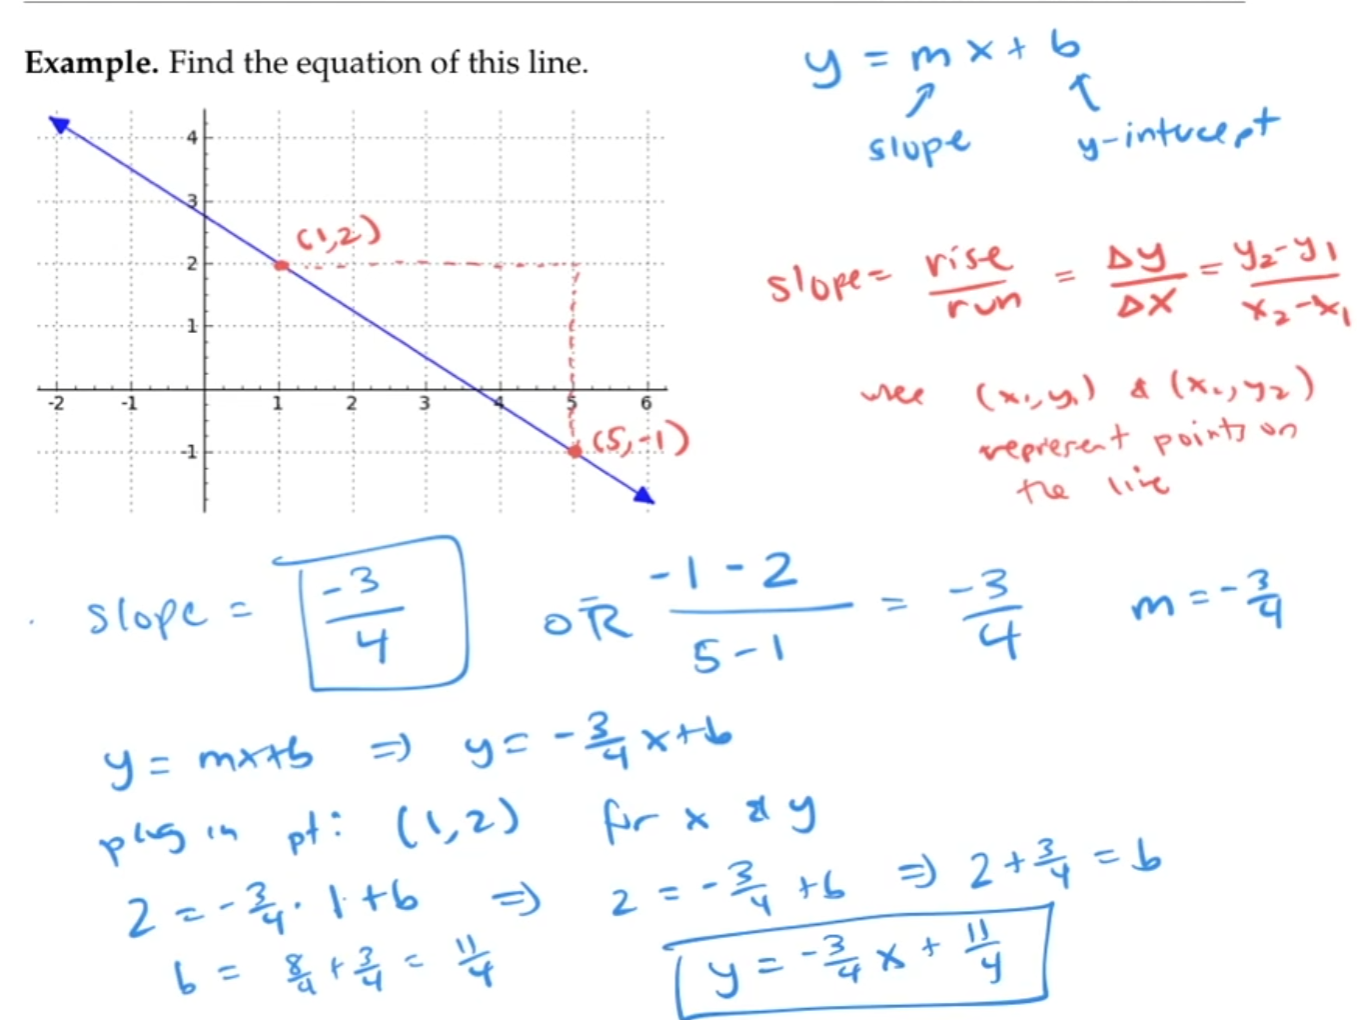 Example. Find the equation of this line.
y = mx + b
slope
y-intercept
4
3
2
1
-1
-2 -1 1 2 3 4 5 6
(1,2)
(5,-1)
slope = rise/run = Δy/Δx = y₂-y₁/x₂-x₁
(x₁,y₁) & (x₂,y₂)
represent points on
the line
slope = -3/4 OR -1-2/5-1 = -3/4 m = -3/4
y = mx+b ⇒ y = -3/4 x+b
plug in pt: (1,2) for x & y
2 = -3/4 · 1 + b ⇒ 2 = -3/4 + b ⇒ 2 + 3/4 = b
b = 8/4 + 3/4 = 11/4
y = -3/4 x + 11/4